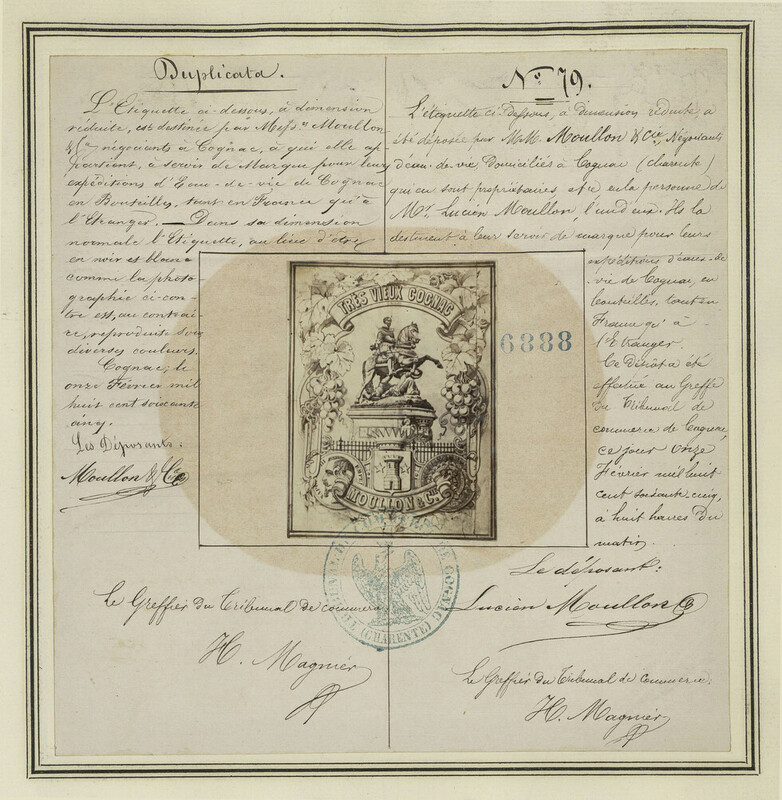 Duplicata.
L'Etiquette ci-dessous, à dimension
réduite, est destinée par Mess.rs Moullon
& Cie négociants à Cognac, à qui elle ap-
partient, à servir de Marque pour leurs
expéditions d'Eau-de-vie de Cognac
en Bouteilles, tant en France qu'à
l'Etranger. — Dans sa dimension
normale l'Etiquette, au lieu d'être
en noir et blanc
comme la photo-
graphie ci-con-
tre est, au contrai-
re, reproduite sous
diverses couleurs.
Cognac, le
onze Février mil
huit cent soixante
cinq.
Les Déposants:
Moullon & Cie
Le Greffier du Tribunal de commerce
H. Magnier
No. 79.
L'étiquette ci-dessous, à dimension réduite, a
été déposée par MM. Moullon & Cie, Négociants
d'eau-de-vie Domiciliés à Cognac (charente)
qui en sont propriétaires et en la personne de
Mr. Lucien Moullon, l'un d'eux. Ils la
destinent à leur servir de marque pour leurs
expéditions d'eaux-de-
vie de Cognac, en
bouteilles, tout en
France qu'à
l'Etranger.
Ce Dépôt a été
effectué au Greffe
du Tribunal de
commerce de Cognac,
ce jour onze
Février mil huit
cent soixante cinq,
à huit heures du
matin.
Le déposant:
Lucien Moullon
Le Greffier du Tribunal de commerce,
H. Magnier
TRÈS VIEUX COGNAC
MOULLON & Cie
6888
TRIBUNAL DE COMMERCE DE COGNAC
(CHARENTE)